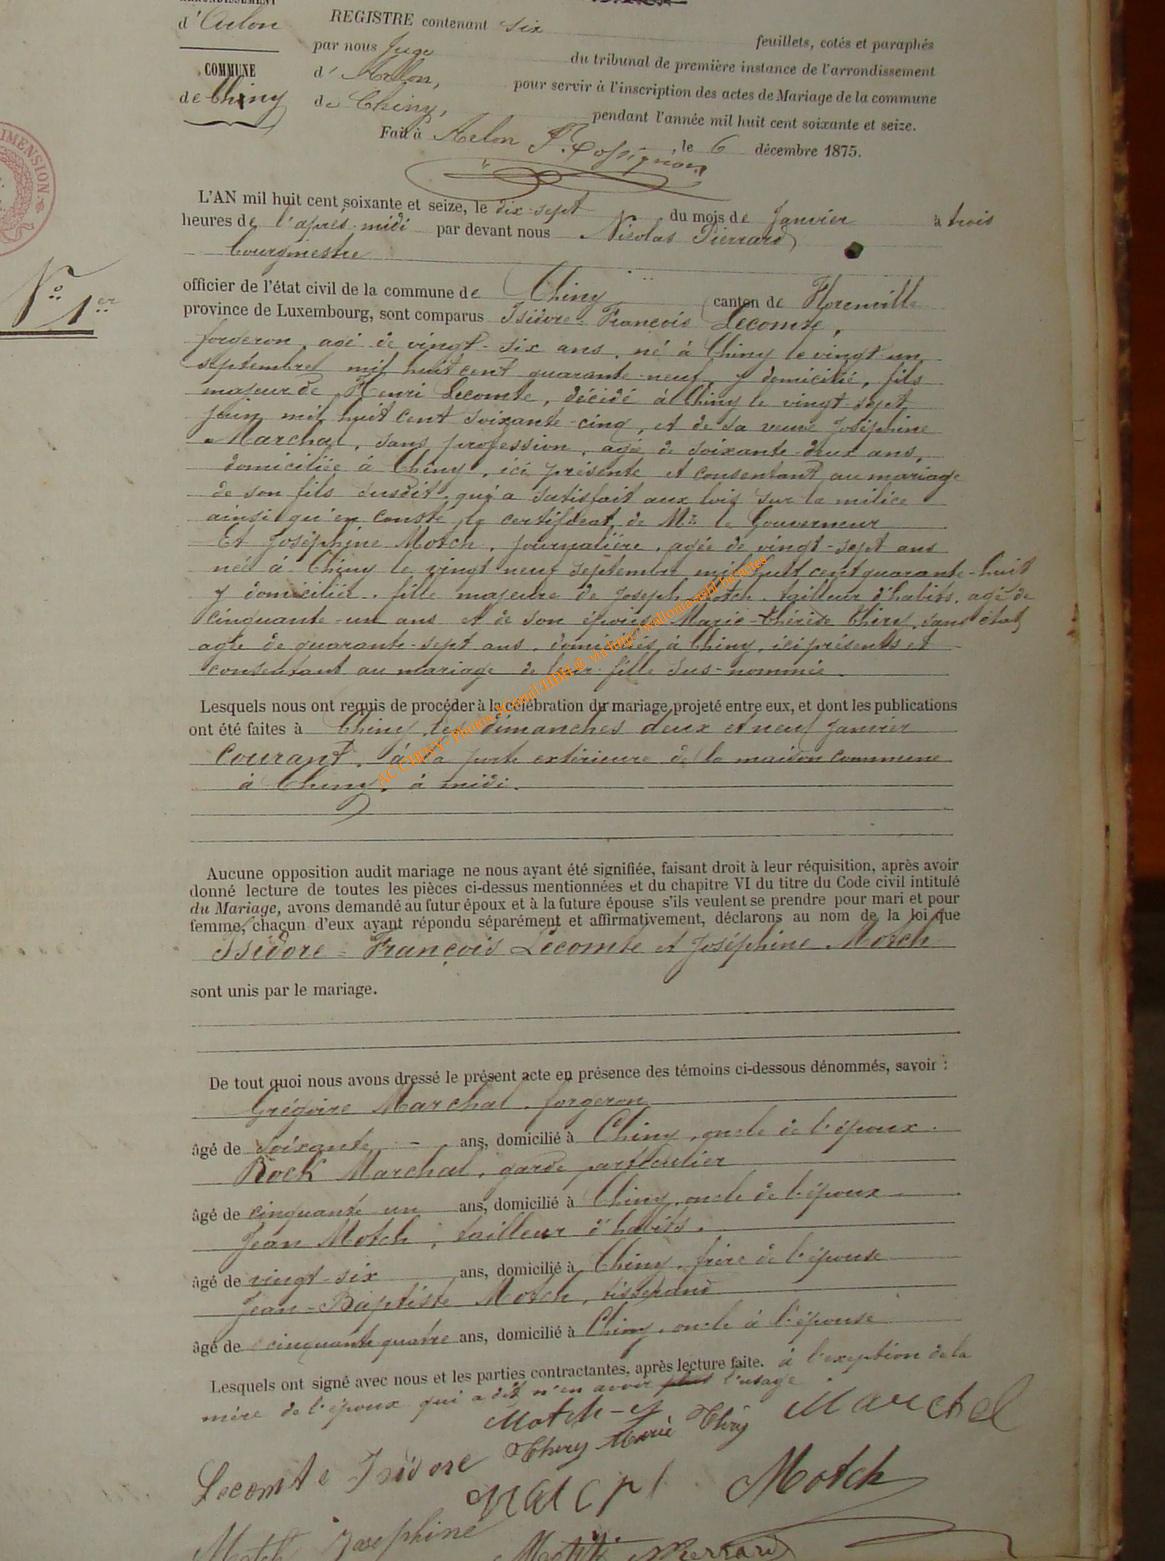 d'Arlon
COMMUNE
de Chiny
DIMENSION
N° 1er
REGISTRE contenant six feuillets, cotés et paraphés
par nous Juge du tribunal de première instance de l'arrondissement
d' Arlon, pour servir à l'inscription des actes de Mariage de la commune
de Chiny, pendant l'année mil huit cent soixante et seize.
Fait à Arlon le 6 décembre 1875.
L'AN mil huit cent soixante et seize, le dix-sept du mois de Janvier à trois
heures de l'après-midi par devant nous Nicolas Pierrard
bourgmestre
officier de l'état civil de la commune de Chiny canton de Florenville
province de Luxembourg, sont comparus Isidore-François Lecomte,
forgeron, agé de vingt-six ans, né à Chiny le vingt un
septembre mil huit cent quarante-neuf, y domicilié, fils
majeur de Henri Lecomte, décédé à Chiny le vingt sept
juin mil huit cent soixante-cinq, et de sa veuve Joséphine
Marchal, sans profession, agée de soixante-deux ans,
domiciliée à Chiny, ici présente et consentant au mariage
de son fils susdit, qui a satisfait aux lois sur la milice
ainsi qu'en conste le certificat de Mr le Gouverneur
Et Joséphine Motch, journalière, agée de vingt-sept ans
née à Chiny le vingt neuf septembre mil huit cent quarante-huit
y domiciliée, fille majeure de Joseph Motch, tailleur d'habits, agé de
cinquante-un ans et de son épouse Marie-Thérèse Thiry, sans état,
agée de quarante-sept ans, domiciliés à Chiny, ici présents et
consentant au mariage de leur fille sus-nommée.
Lesquels nous ont requis de procéder à la célébration du mariage projeté entre eux, et dont les publications
ont été faites à Chiny, les dimanches deux et neuf janvier
courant, à la porte extérieure de la maison commune
à Chiny, à midi.
Aucune opposition audit mariage ne nous ayant été signifiée, faisant droit à leur réquisition, après avoir
donné lecture de toutes les pièces ci-dessus mentionnées et du chapitre VI du titre du Code civil intitulé
du Mariage, avons demandé au futur époux et à la future épouse s'ils veulent se prendre pour mari et pour
femme, chacun d'eux ayant répondu séparément et affirmativement, déclarons au nom de la loi que
Isidore-François Lecomte et Joséphine Motch
sont unis par le mariage.
De tout quoi nous avons dressé le présent acte en présence des témoins ci-dessous dénommés, savoir :
Grégoire Marchal, forgeron
âgé de soixante ans, domicilié à Chiny, oncle de l'époux.
Rock Marchal, garde particulier
âgé de cinquante un ans, domicilié à Chiny, oncle de l'époux
Jean Motch, tailleur d'habits.
âgé de vingt-six ans, domicilié à Chiny, frère de l'épouse
Jean-Baptiste Motch, tisserand
âgé de cinquante quatre ans, domicilié à Chiny, oncle à l'épouse
Lesquels ont signé avec nous et les parties contractantes, après lecture faite. à l'exception de la
mère de l'époux qui a dit n'en avoir l'usage
Motch Marchal
Lecomte Isidore Thiry Marie Thiry
Motch
Motch Josephine
Pierrard